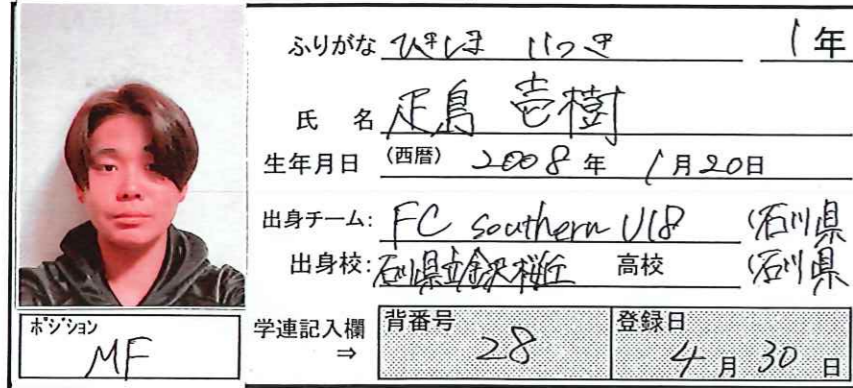 ふりがな ひきしま いつき 1年
氏 名 疋島 壱樹
生年月日 (西暦) 2008年 1月20日
出身チーム: FC southern U18 (石川県
出身校: 石川県立金沢桜丘 高校 (石川県
ポジション
MF
学連記入欄 ⇒
背番号
28
登録日
4月30日